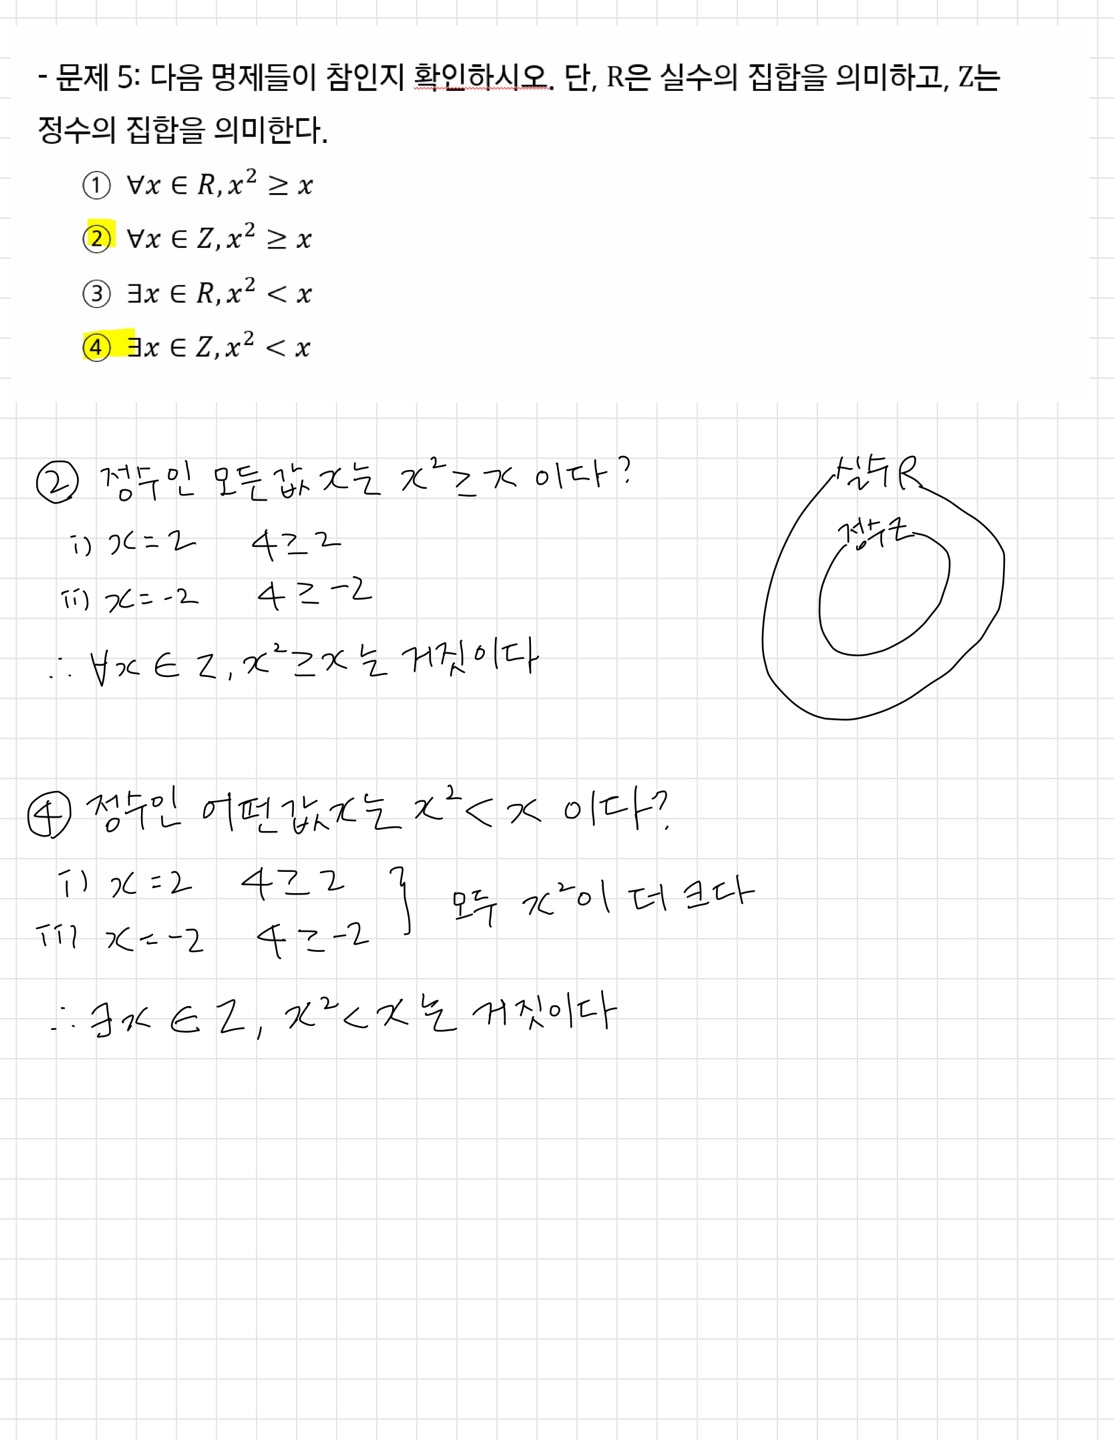 - 문제 5: 다음 명제들이 참인지 확인하시오. 단, R은 실수의 집합을 의미하고, Z는
정수의 집합을 의미한다.
① ∀x ∈ R, x² ≥ x
② ∀x ∈ Z, x² ≥ x
③ ∃x ∈ R, x² < x
④ ∃x ∈ Z, x² < x
② 정수인 모든 값 x는 x² ≥ x 이다?
i) x = 2 4 ≥ 2
ii) x = -2 4 ≥ -2
∴ ∀x ∈ Z, x² ≥ x는 거짓이다
실수 R
정수 Z
④ 정수인 어떤 값 x는 x² < x 이다?
i) x = 2 4 ≥ 2
ii) x = -2 4 ≥ -2
모두 x²이 더 크다
∴ ∃x ∈ Z, x² < x는 거짓이다